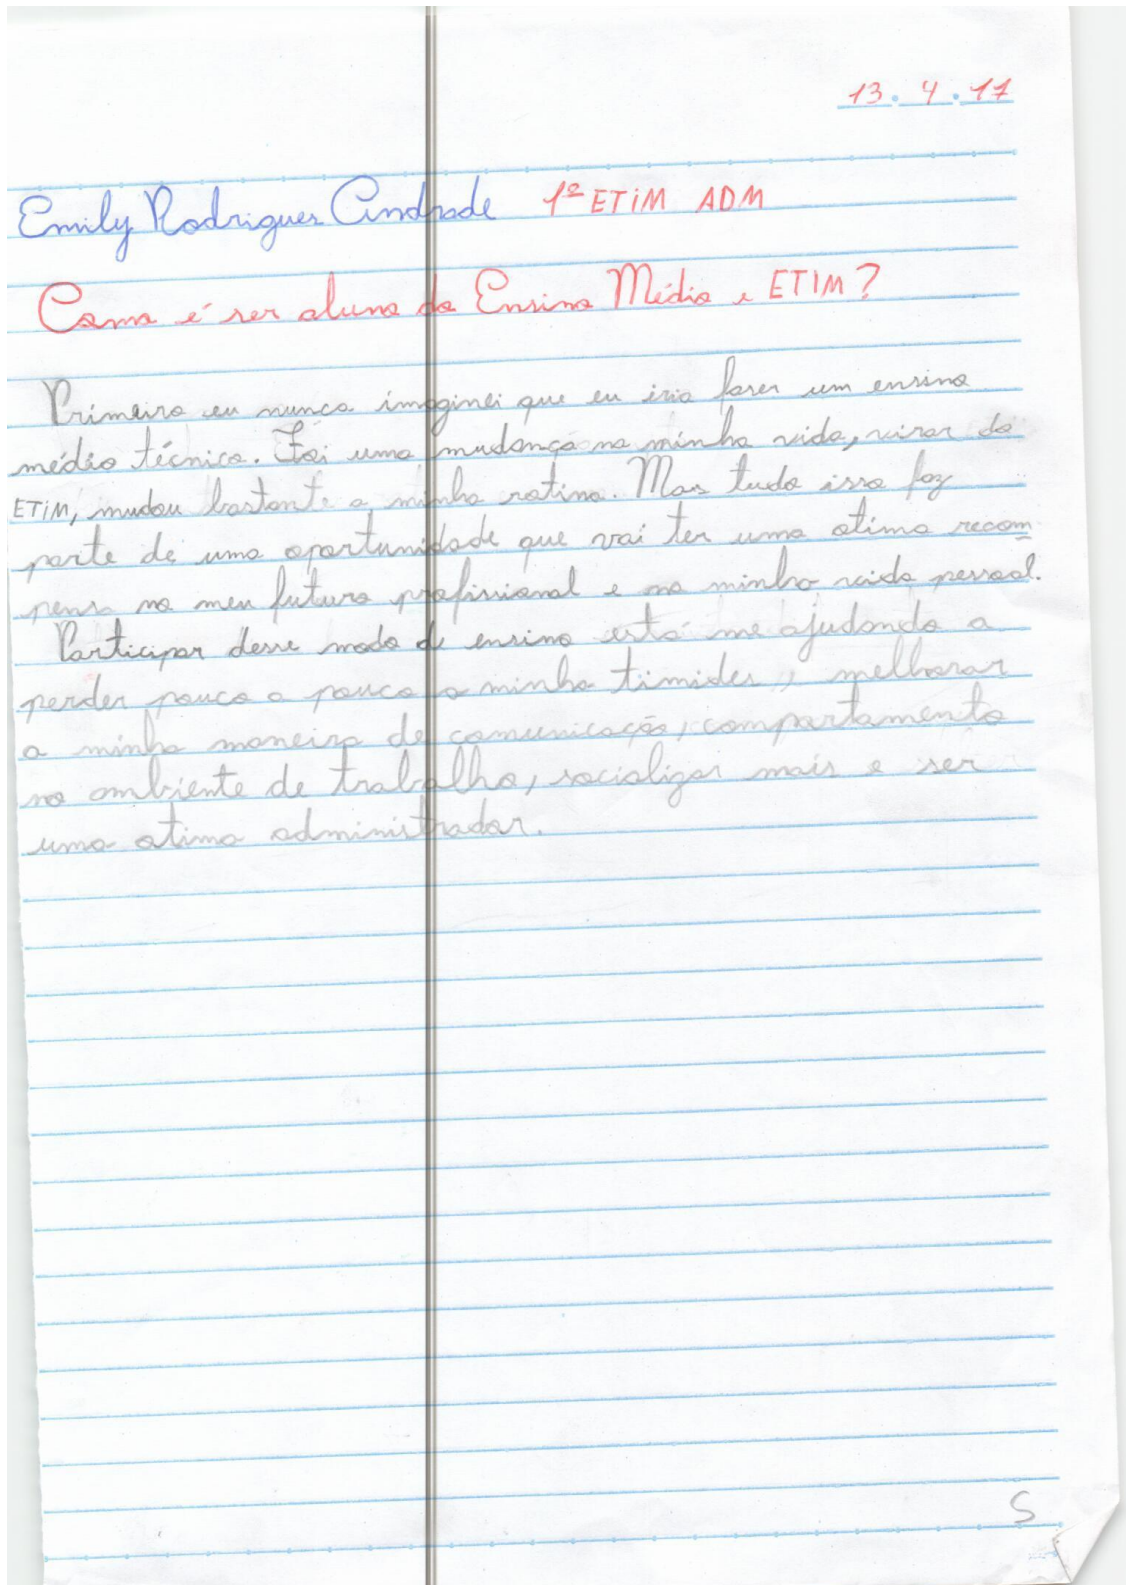 13.4.17
Emily Rodrigues Andrade 1º ETIM ADM
Como é ser aluno do Ensino Médio e ETIM?
Primeiro eu nunca imaginei que eu iria faser um ensino
médio técnico. Foi uma mudança na minha vida, virar do
ETIM, mudou bastante a minha rotina. Mas tudo isso faz
parte de uma oportunidade que vai ter uma otima recom
pensa no meu futuro profissional e na minha vida pessoal.
Participar desse modo de ensino está me ajudando a
perder pouco a pouco a minha timides, melhorar
a minha maneira de comunicação, comportamento
no ambiente de trabalho, socializar mais e ser
uma otima administrador.
S